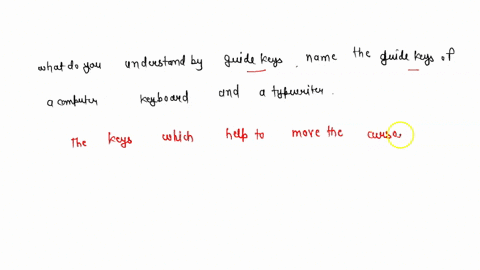 what do you understand by guide keys . name the guide keys of
a computer keyboard and a typewriter .
The keys which help to move the curso